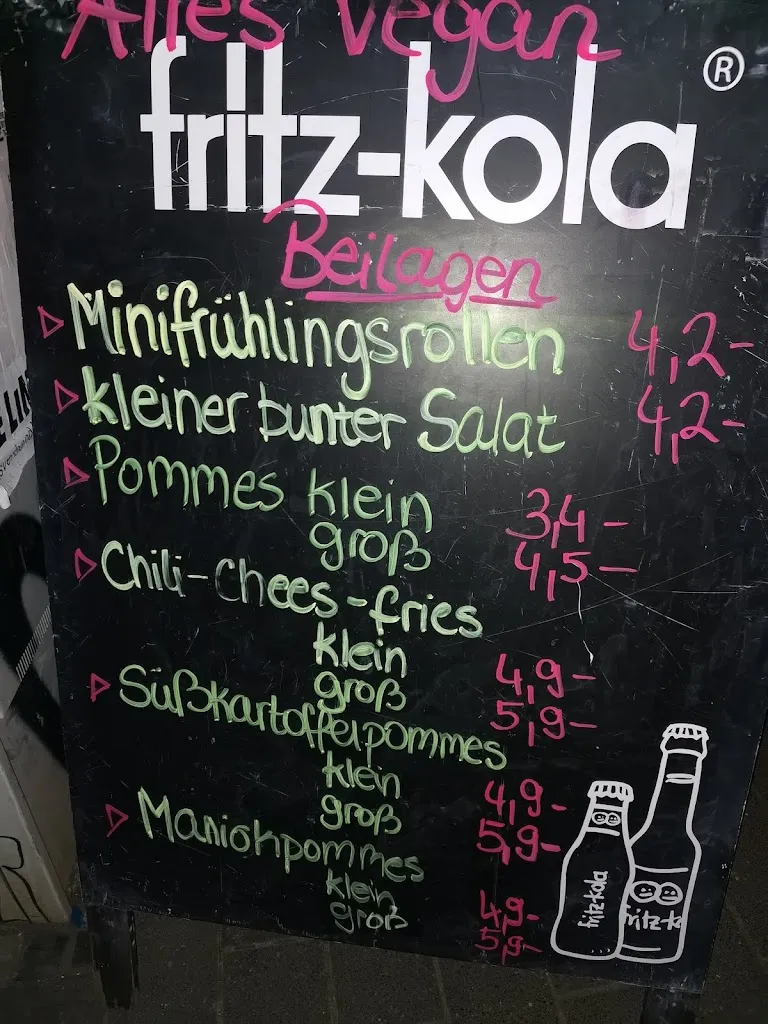 Alles vegan
fritz-kola ®
Beilagen
Minifrühlingsrollen 4,2-
kleiner bunter Salat 4,2-
Pommes klein 3,4-
groß 4,5-
Chili-Chees-fries
klein 4,9-
groß 5,9-
Süßkartoffelpommes
klein 4,9-
groß 5,9-
Maniokpommes
klein 4,9-
groß 5,9-
fritz-kola
fritz-k